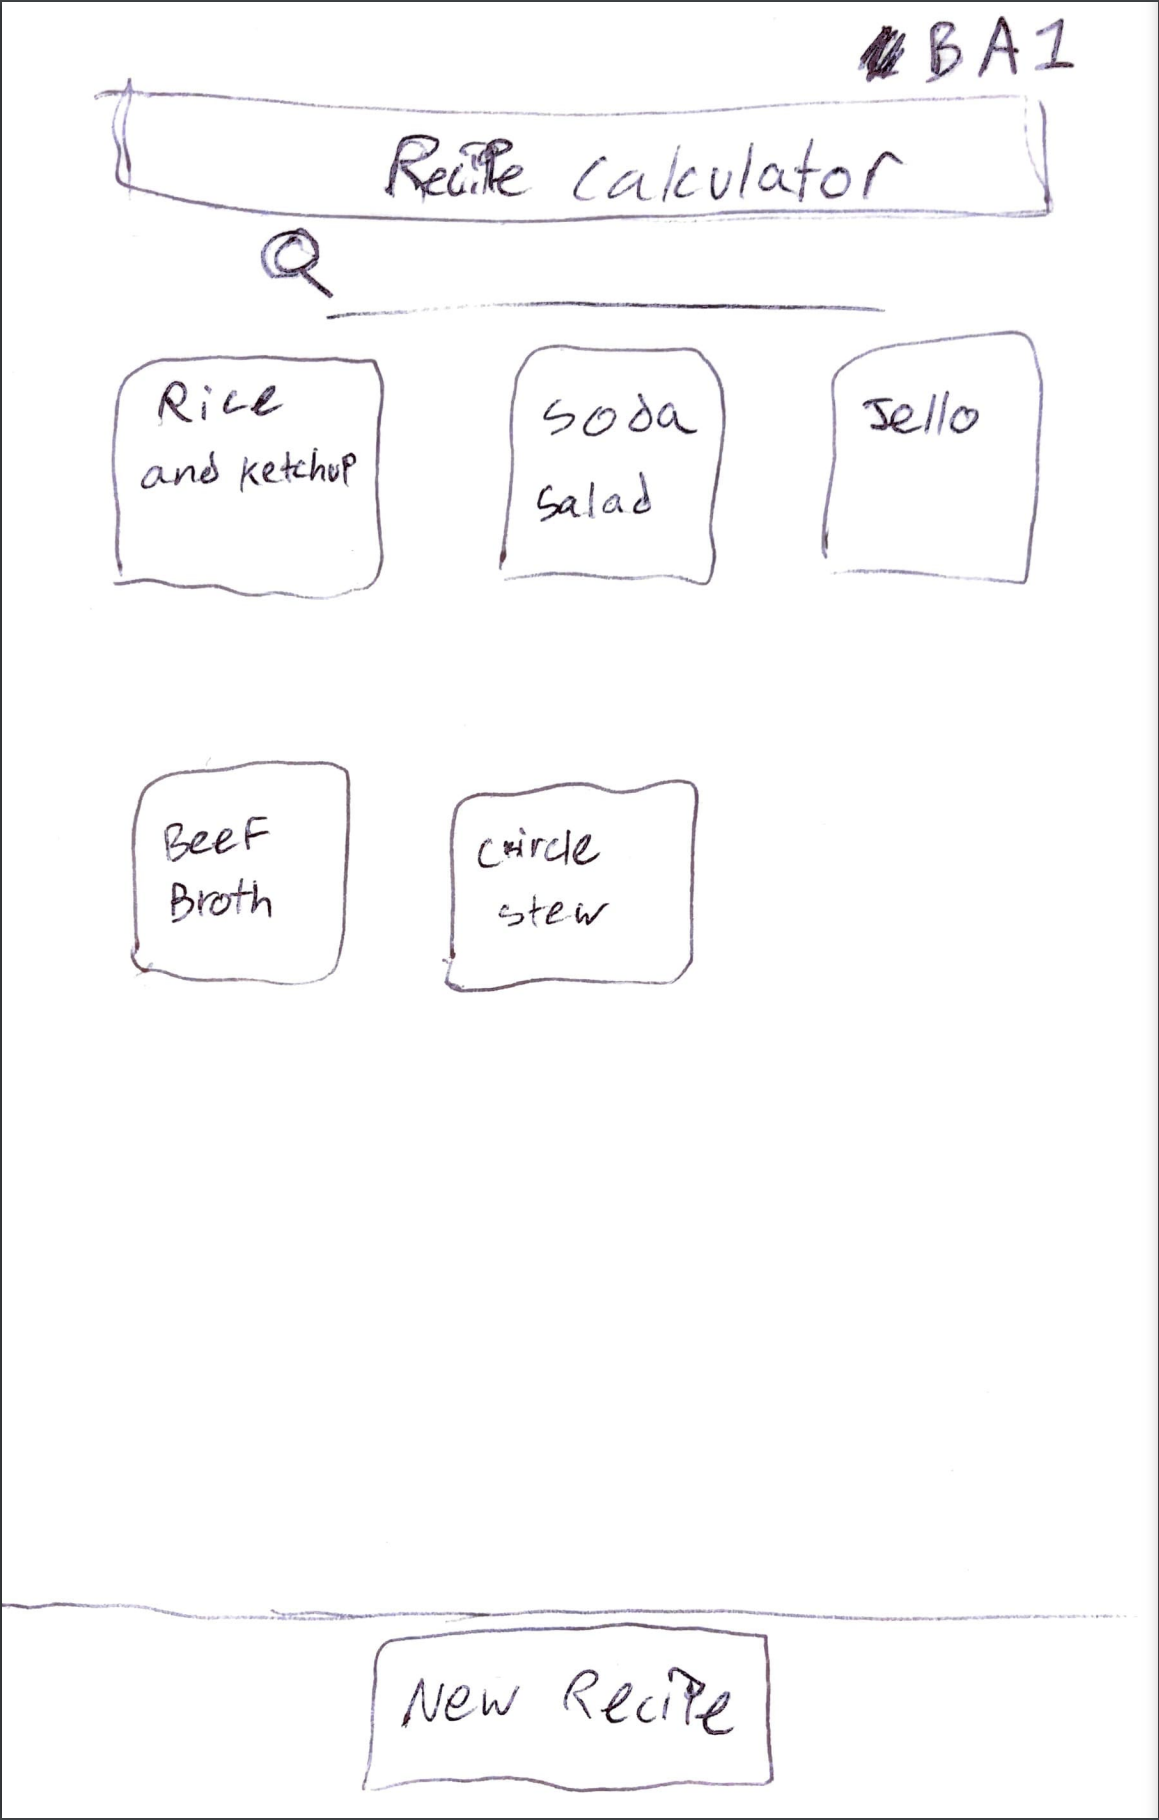 BA1
Recipe calculator
Rice
and ketchup
Soda
Salad
Jello
Beef
Broth
circle
stew
New Recipe